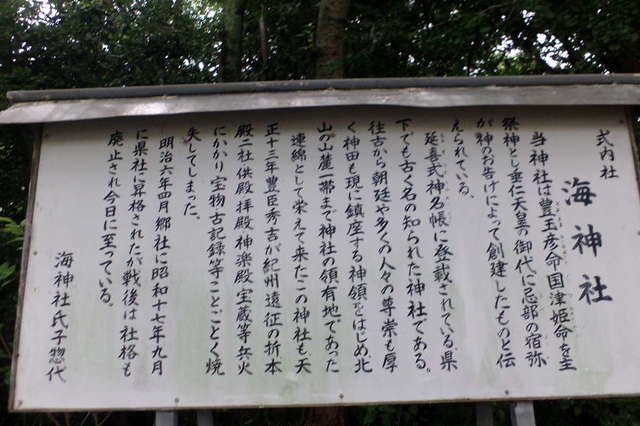 式内社
海神社
当神社は豊玉彦命国津姫命を主
祭神とし垂仁天皇の御代に忌部の宿弥
が神のお告げによって創建したものと伝
えられている。
延喜式神名帳に登載されている県
下でも古く名の知られた神社である。
往古から朝廷や多くの人々の尊崇も厚
く神田も現に鎮座する神領をはじめ北
山の山麓一帯まで神社の領有地であった
連綿として栄えて来たこの神社も天
正十三年豊臣秀吉が紀州遠征の折本
殿二社供殿拝殿神楽殿宝蔵等兵火
にかかり宝物古記録等ことごとく焼
失してしまった。
明治六年四月郷社に昭和十七年九月
に県社に昇格されたが戦後は社格も
廃止され今日に至っている。
海神社氏子惣代